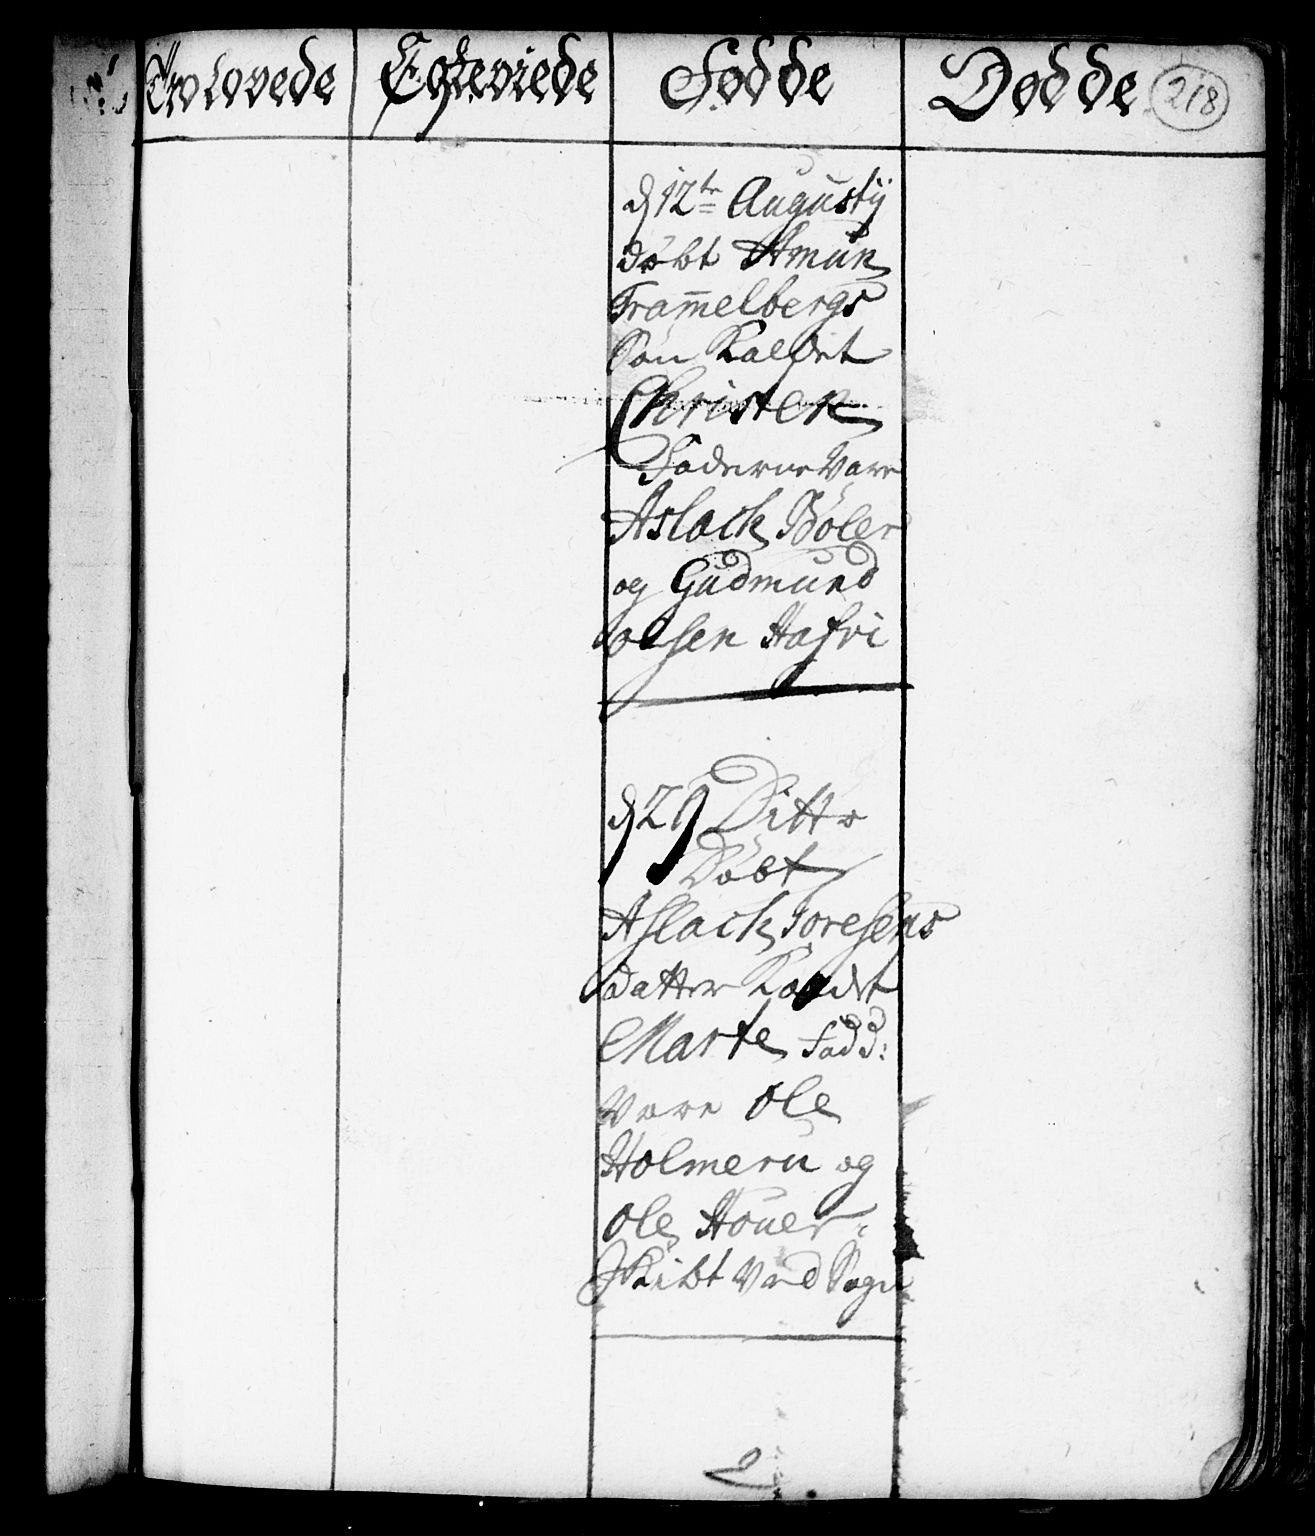 Trolovede Egteviede Fødde Dødde 218
d 12te Augustij
døbt Amun
Tram̅elbergs
Søn Kaldet
Christen
Faderne Vare
Aslack Bøler
og Gudmund
olsen Hafri
d 29 Ditto
Døbt
Aslack Toresens
datter Kaldet
Marte fadd:
Vare Ole
Holmeru og
Ole Houer
Kibt Ved Sogn